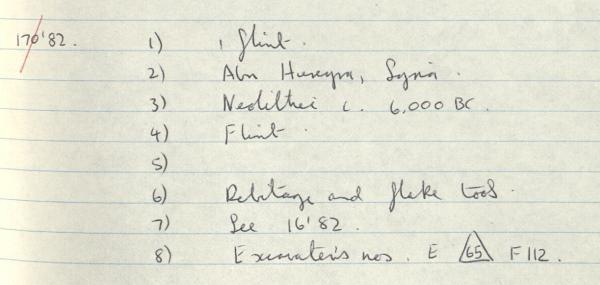 170'82. 1) 1 flint.
2) Abu Hureyra, Syria.
3) Neolithic c. 6,000 BC.
4) Flint.
5)
6) Debitage and flake tools.
7) See 16'82.
8) Excavator's nos. E 65 F112.